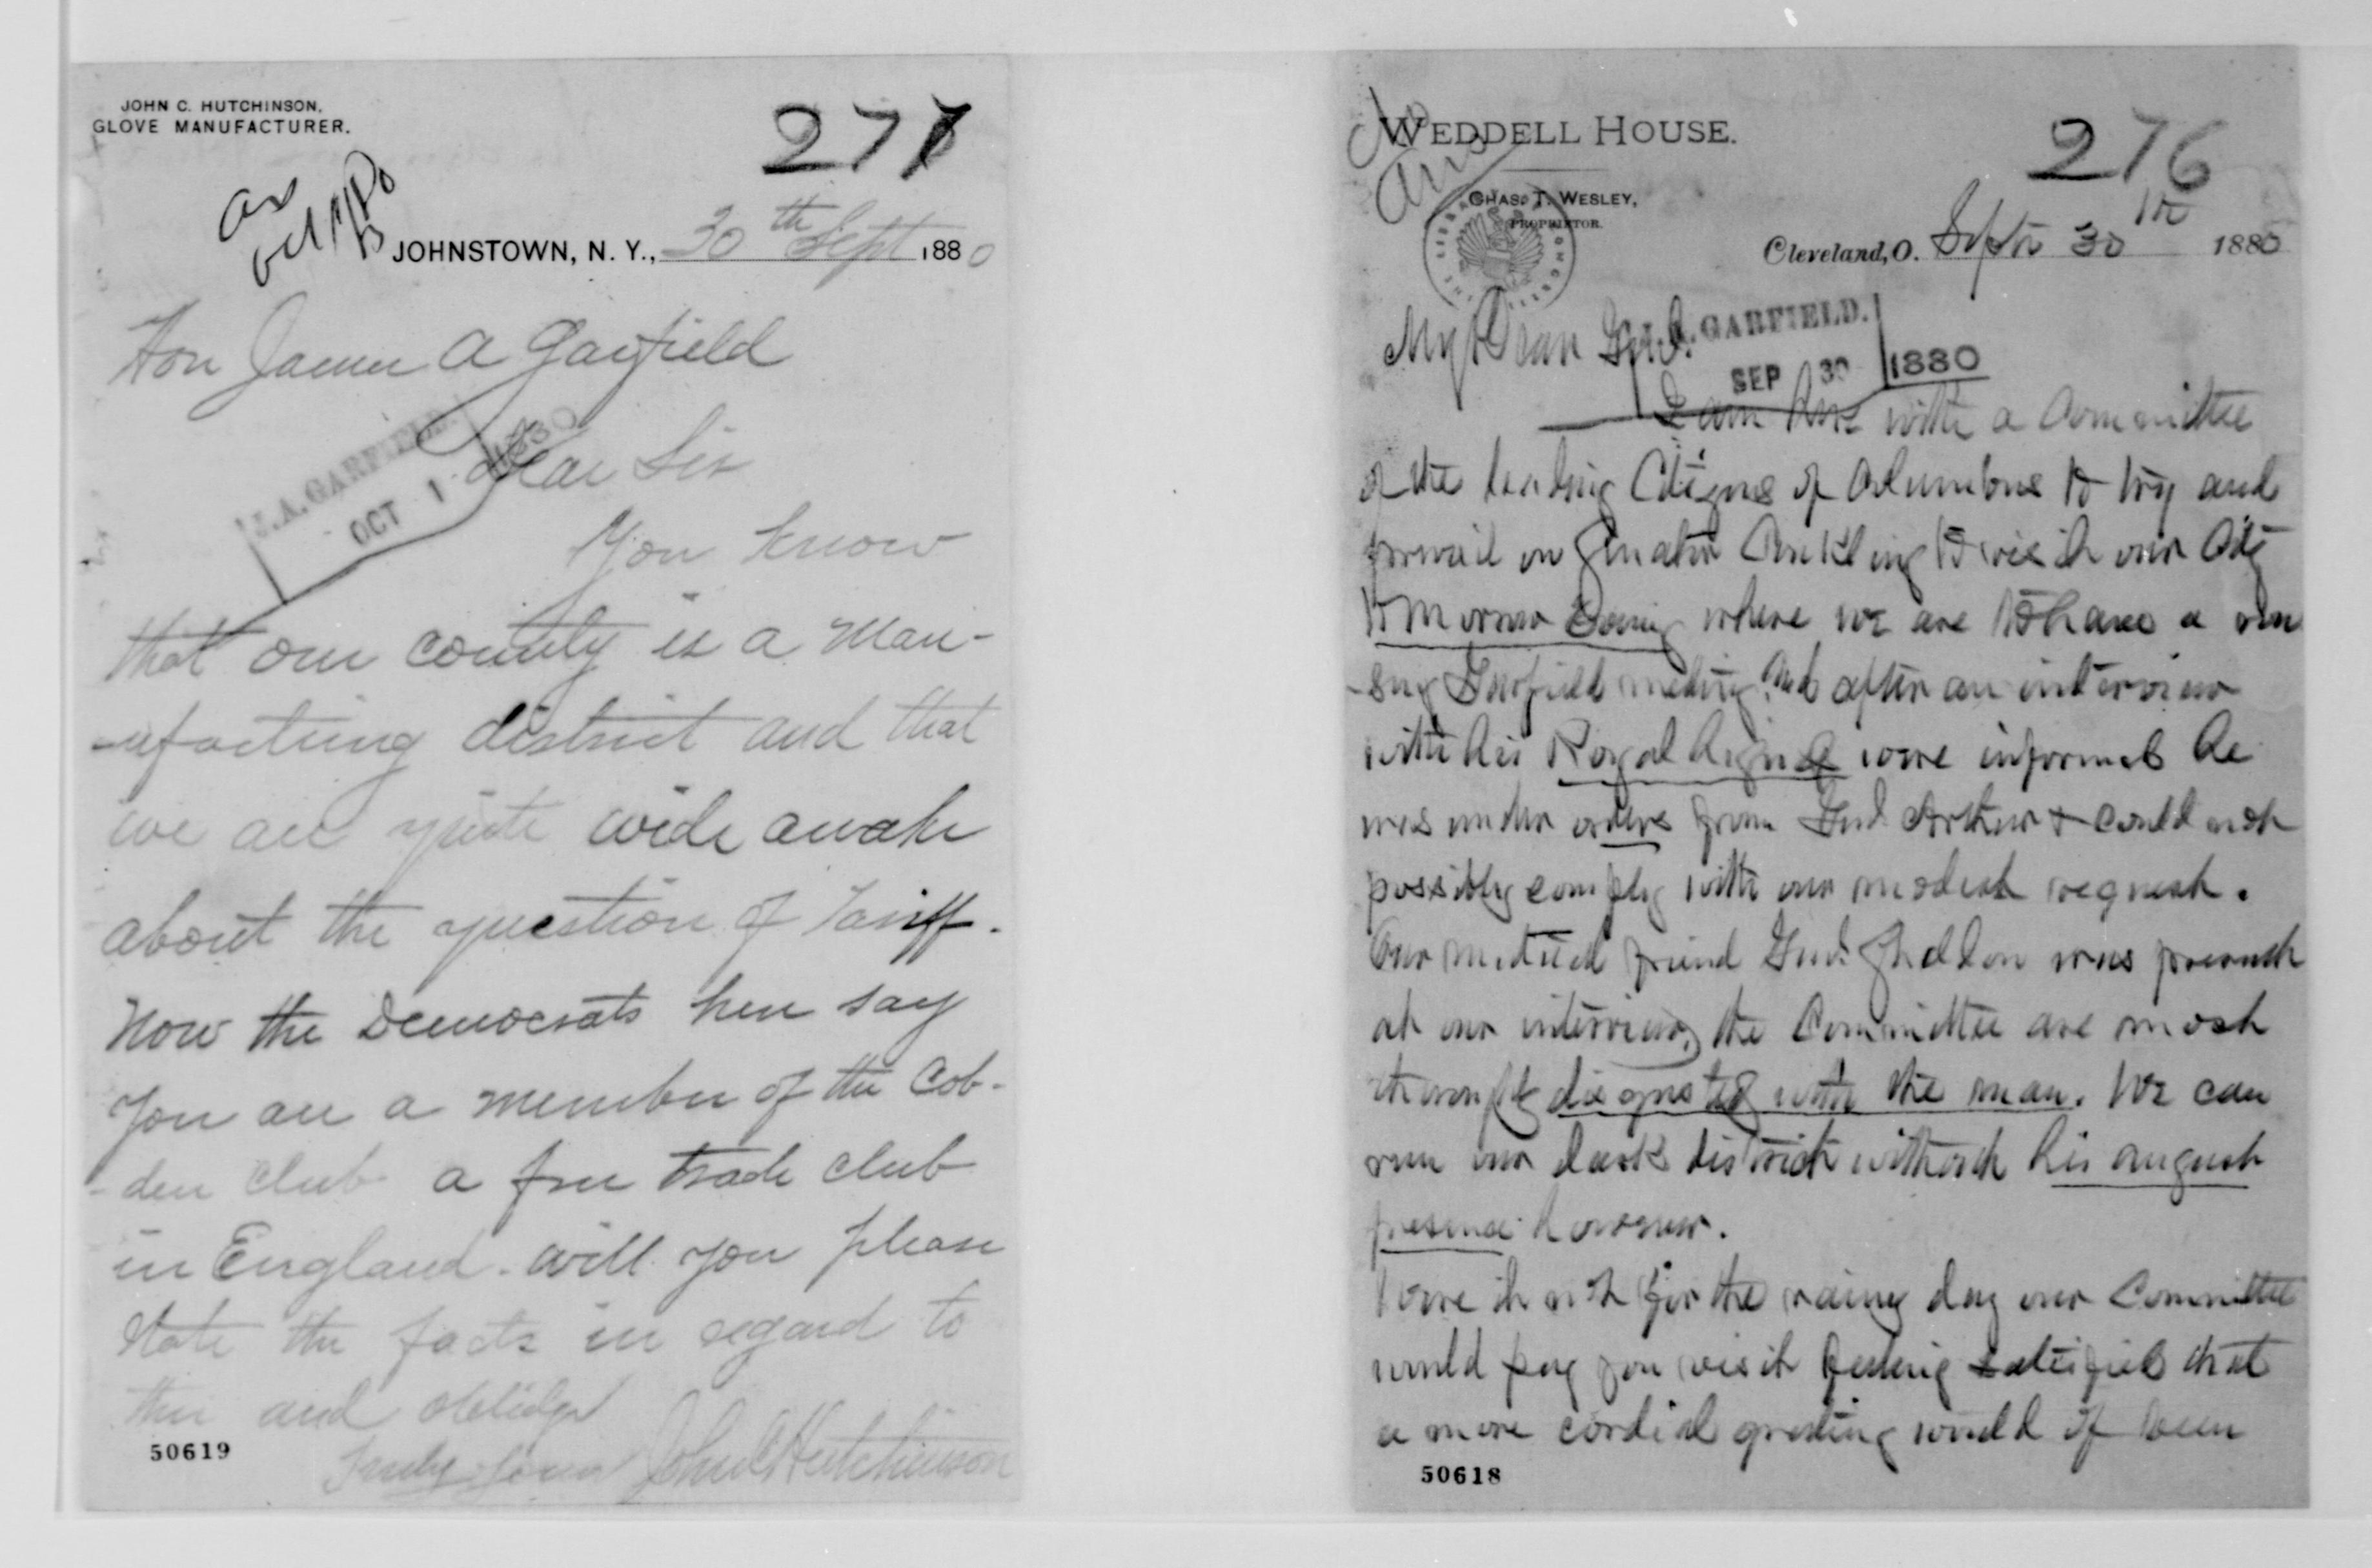 JOHN C. HUTCHINSON,
GLOVE MANUFACTURER.
277
JOHNSTOWN, N. Y., 30th Sept 1880
Hon James A Garfield
J.A. GARFIELD.
OCT 1 1880
Dear Sir
You know
that our county is a Man-
-ufacturing district and that
we are quite wide awake
about the question of Tariff.
Now the Democrats here say
You are a member of the Cob-
-den club a free trade club
in England. will you please
state the facts in regard to
this and oblidge
Truly Yours John C Hutchinson
50619
WEDDELL HOUSE.
276
CHAS. T. WESLEY,
PROPRIETOR.
Cleveland, O. Septr 30th 1880
My Dear Genl.
J.A. GARFIELD.
SEP 30 1880
I am here with a Committee
of the leading Citizens of Columbus to try and
prevail on Senator Conkling to visit our City
tomorrow Evening where we are to have a rou
-sing Garfield meeting, and after an interview
with his Royal were informed he
was under orders from Genl Arthur & could not
possibly comply with our modest request.
Our mutual friend Genl. Sheldon was present
at our interview, the Committee are most
disgusted with the man. We can
run our district without his august
presence however.
Were it not for the rainy day our Committee
would pay you visit feeling satisfied that
a more cordial greeting would of been
50618